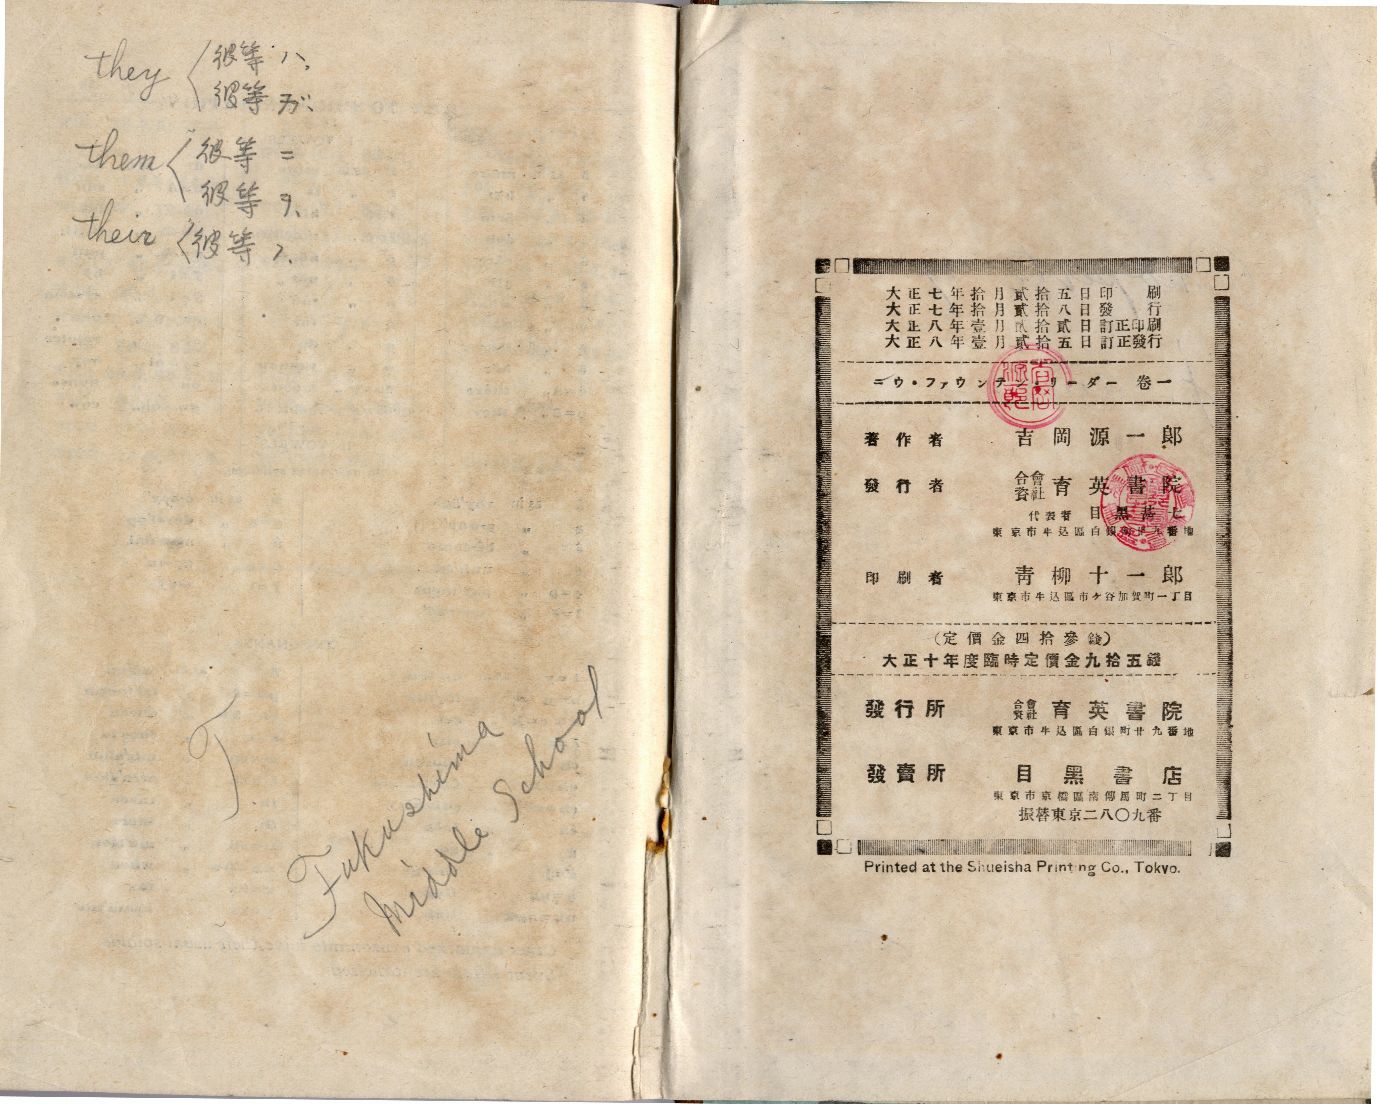 they
彼等ハ、
彼等ガ、
them
彼等ニ
彼等ヲ、
their
彼等ノ、
T
Fukushima
Middle School
大正七年拾月貳拾五日印刷
大正七年拾月貳拾八日發行
大正八年壹月貳拾貳日訂正印刷
大正八年壹月貳拾五日訂正發行
ニウ・ファウンテン・リーダー 卷一
著作者 吉岡源一郎
發行者 合資會社 育英書院
代表者 目黑甚七
東京市牛込區白銀町廿九番地
印刷者 靑柳十一郎
東京市牛込區市ケ谷加賀町一丁目
(定價金四拾參錢)
大正十年度臨時定價金九拾五錢
發行所 合資會社 育英書院
東京市牛込區白銀町廿九番地
發賣所 目黑書店
東京市京橋區南傳馬町二丁目
振替東京二八〇九番
Printed at the Shueisha Printing Co., Tokyo.